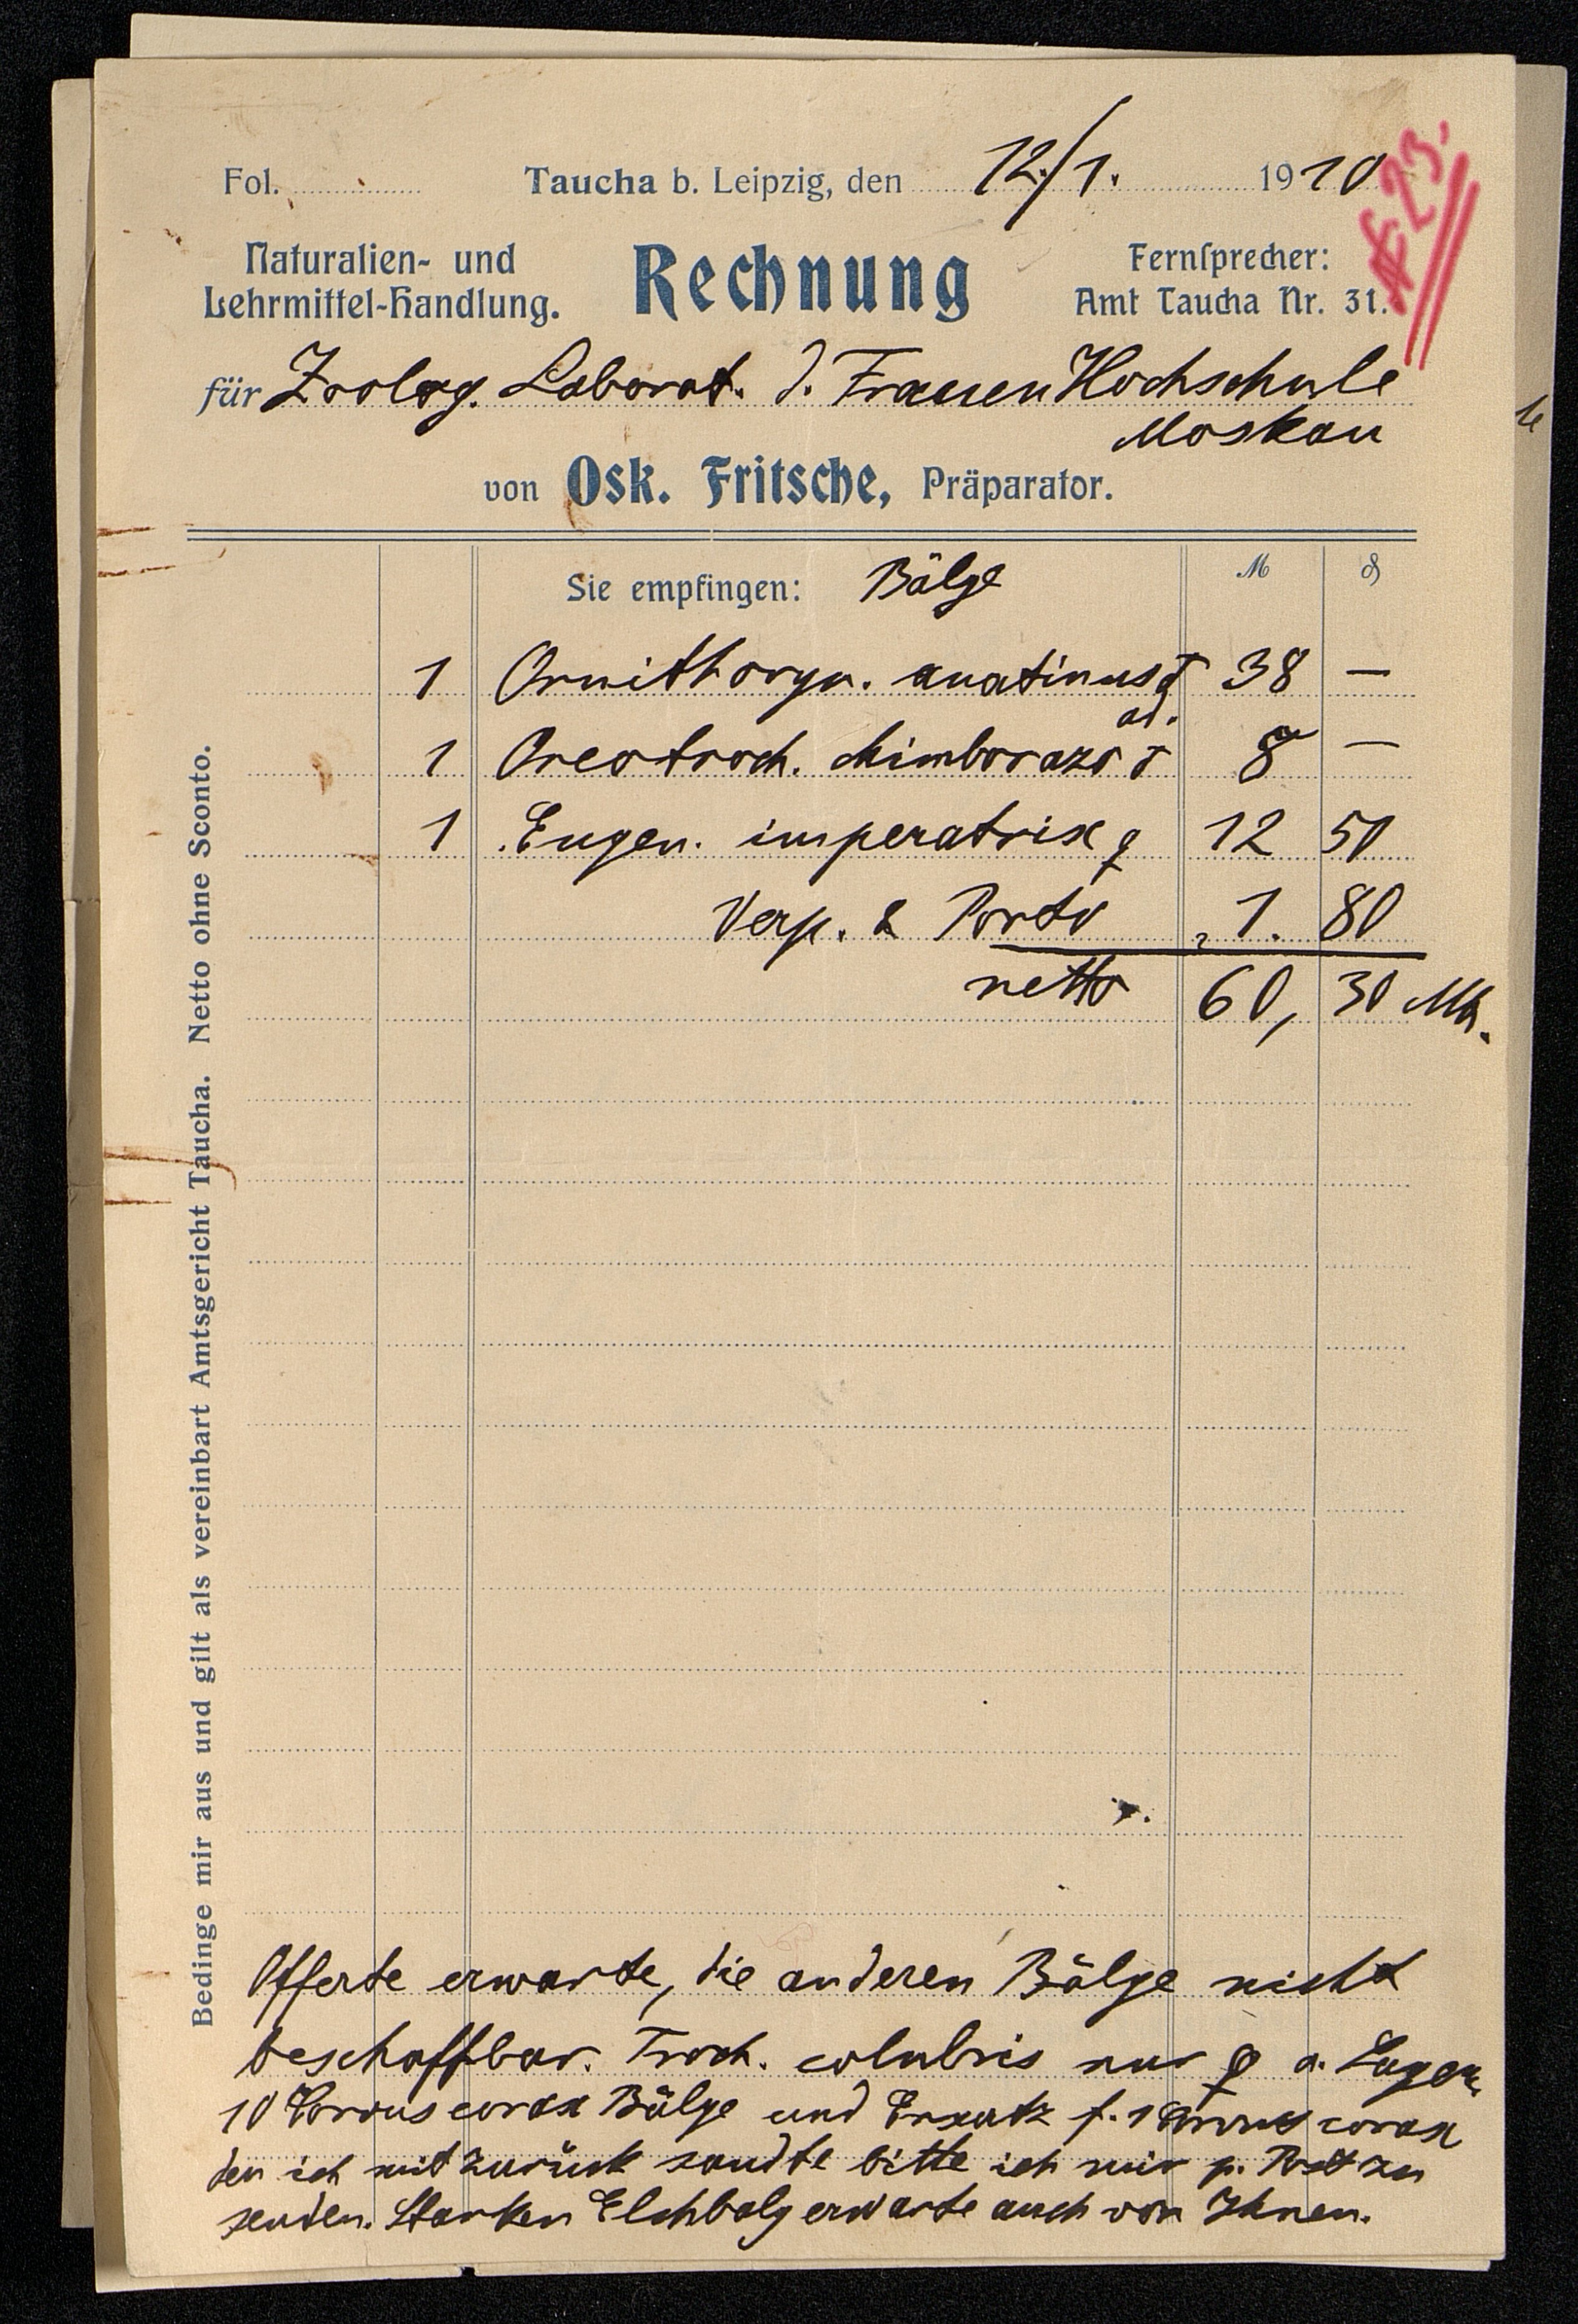 № 23.
Fol. Taucha b. Leipzig, den 12./1. 1910
Naturalien- und
Lehrmittel-Handlung.
Rechnung
Fernsprecher:
Amt Taucha Nr. 31.
für Zoolog. Laborat. d. Frauen Hochschule
Moskau
von Osk. Fritsche, Präparator.
Sie empfingen: Bälge M ₰
1 Ornithoryn. anatinus ♂ 38 —
ad.
1 Oreotroch. chimborazo ♂ 8 —
1 Eugen. imperatrix ♀ 12 50
Verp. & Porto " 1. 80
netto 60, 30 Mk.
Bedinge mir aus und gilt als vereinbart Amtsgericht Taucha. Netto ohne Sconto.
Offerte erwarte, die anderen Bälge nicht
beschaffbar. Troch. colubris nur ♀ a. Lager.
10 Corvus corax Bälge und Ersatz f. 1 Corvus corax
den ich mit zurück sandte bitte ich mir p. Post zu
senden. Starken Elchbalg erwarte auch von Ihnen.